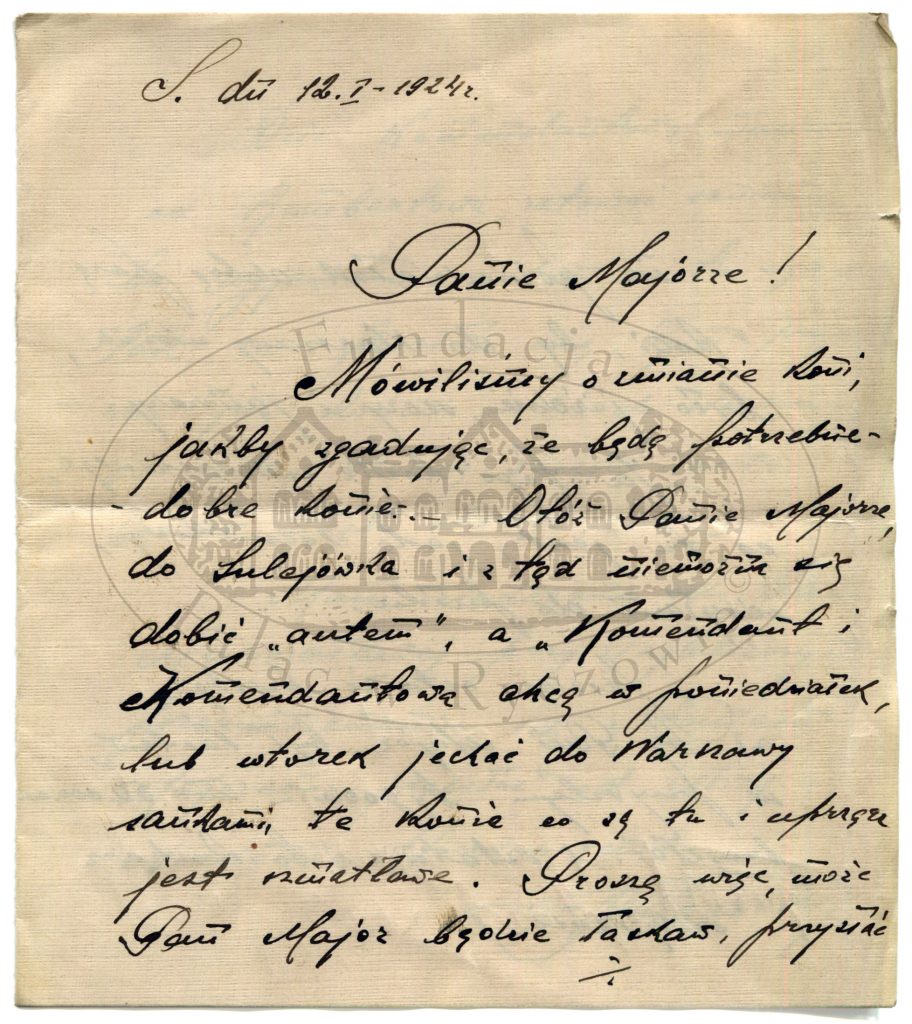 S. dn 12.I-1924r.
Panie Majorze!
Mówiliśmy o zmianie koni,
jakby zgadując, że będą potrzebne-
- dobre konie.- Otóż Panie Majorze,
do Sulejówka i z tąd niemożna się
dobić „autem", a „Komendant i
Komendantowa chcą w poniedziałek,
lub wtorek jechać do Warszawy
sankami, te konie co są tu i uprząż
jest szmatława. Proszę więc, może
Pan Major będzie łaskaw, przysłać
./.
Fundacja
Pałac Ryczów